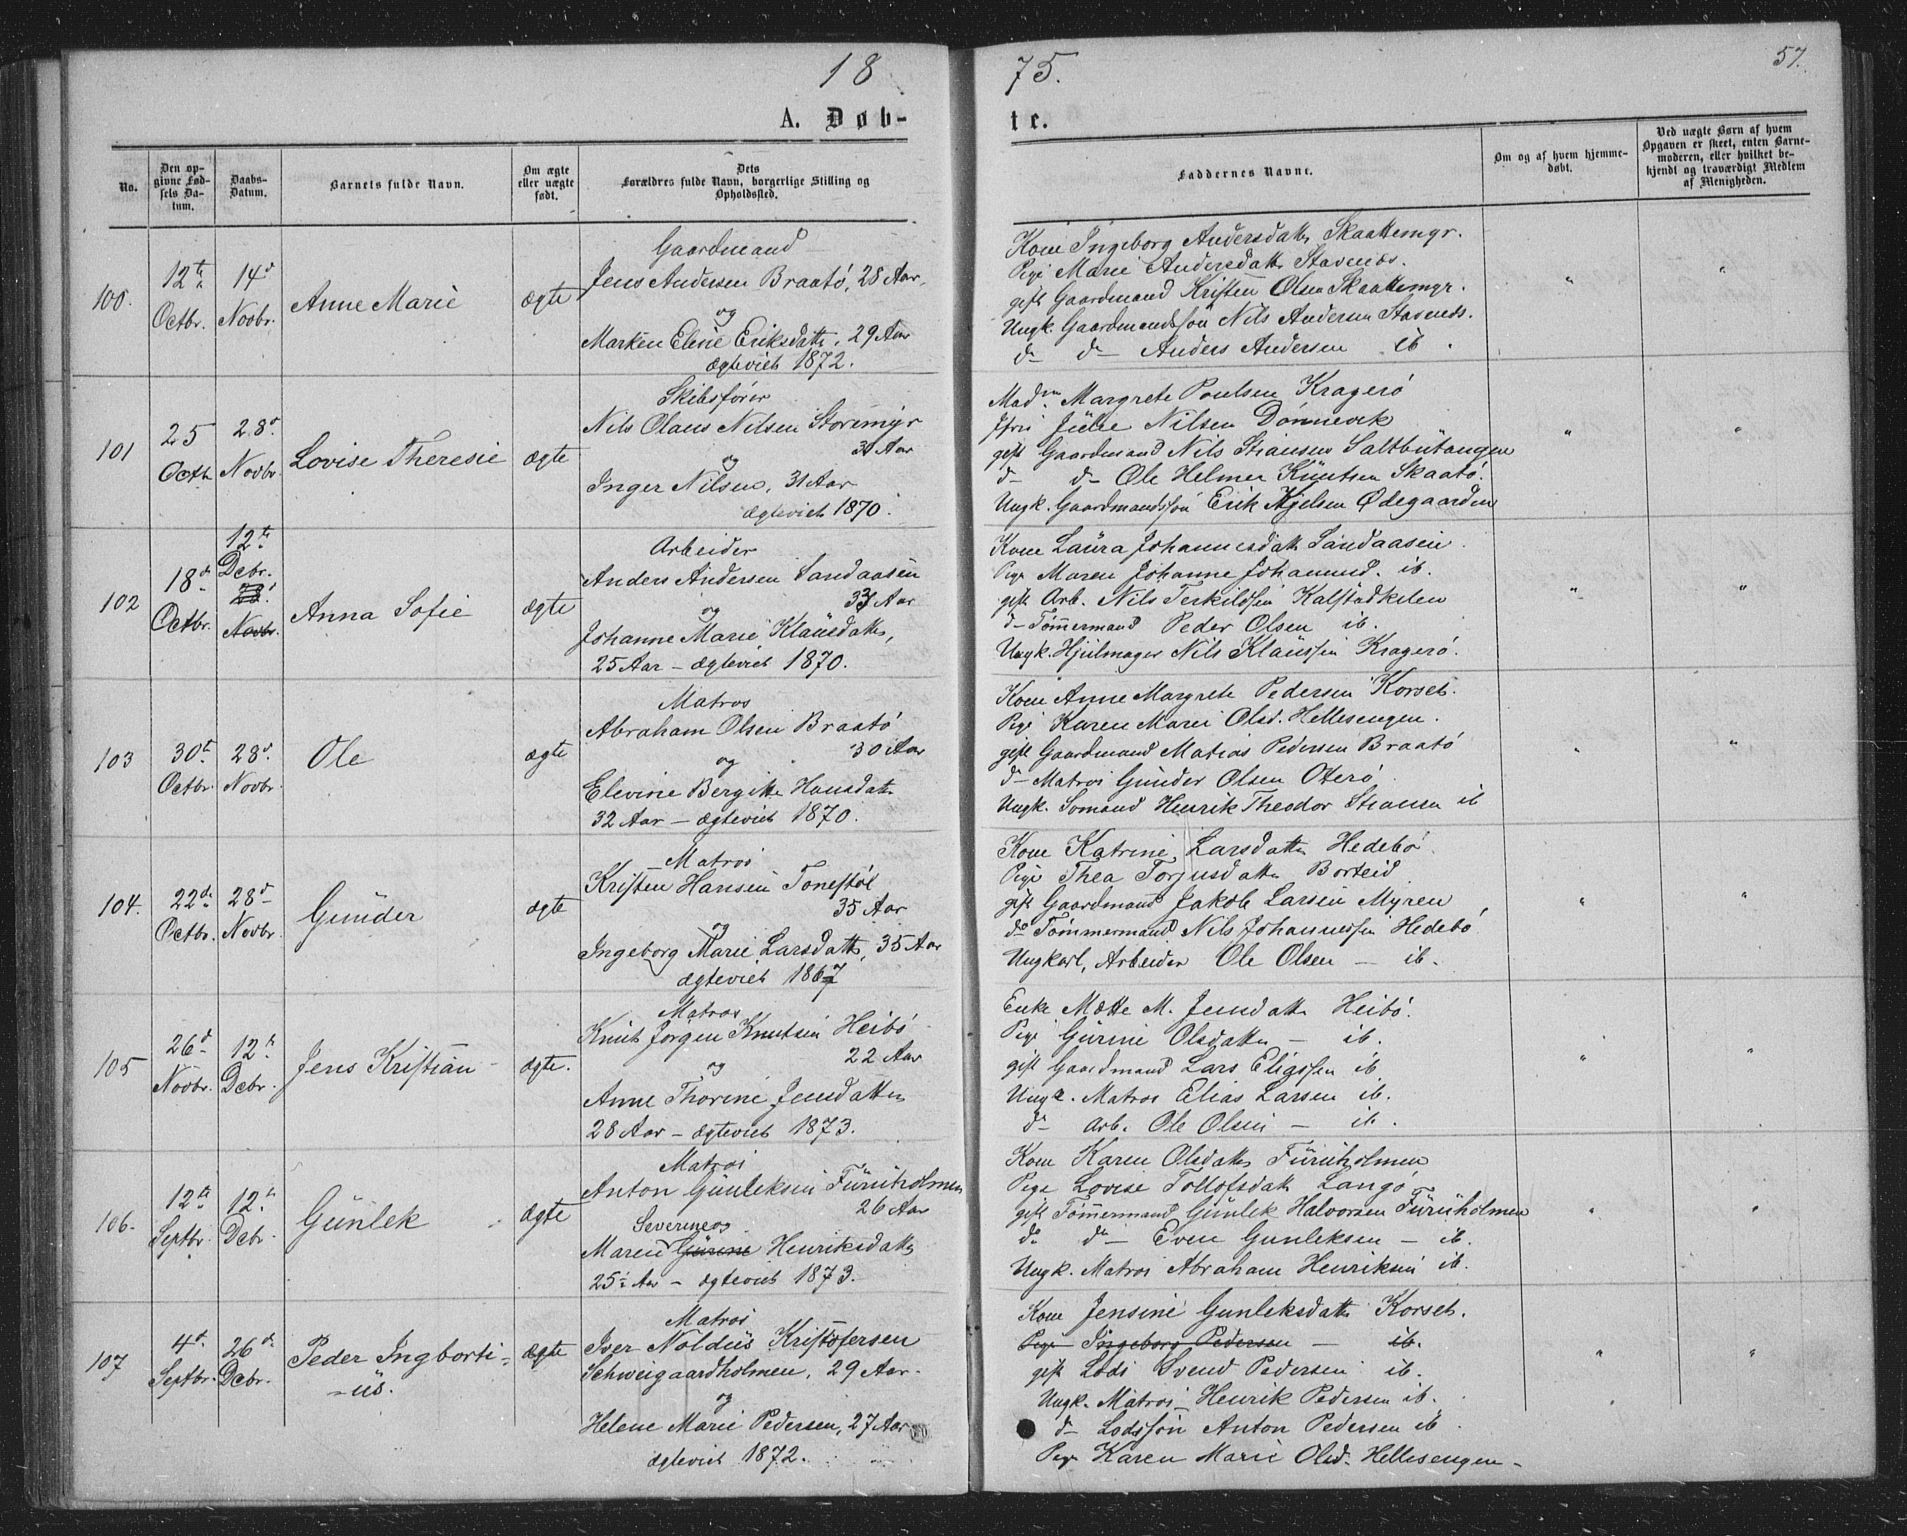 18
75.
57.
A. Døb-
te.
No.
Den op-
givne Fød-
sels Da-
tum.
Daabs-
Datum.
Barnets fulde Navn.
Om ægte
eller uægte
født.
Dets
Forældres fulde Navn, borgerlige Stilling og
Opholdssted.
Faddernes Navne.
Om og af hvem hjemme-
døbt.
Ved uægte Børn af hvem
Opgaven er skeet, enten Barne-
moderen, eller hvilket be-
kjendt og troværdigt Medlem
af Menigheden.
100.
12te
Octbr.
14d
Novbr.
Anne Marie
ægte
Gaardmand
Jens Andersen Braatö, 28 Aar.
og
Marken Eline Eriksdatt. 29 Aar
ægteviet 1872.
Kone Ingeborg Andersdatt. Skaattemyr.
Pige Marie Andersdatt. Stavnæs.
gift Gaardmand Kristen Olsen Skaattemyr.
Ungk. Gaardmandssön Nils Andersen Stavnæs.
do do Anders Andersen ib.
101
25
Octbr
28d.
Novbr
Lovise Theresie
ægte
Skibsförer
Nils Olaus Nilsen Storemyr
31 Aar
og
Inger Nilsen, 31 Aar
ægteviet 1870.
Madm. Margrete Poulsen Kragerö
Jfru Jülie Nilsen Dönnevik
gift Gaardmand Nils Stiansen Saltbütangen
do do Ole Helmer Knütsen Skaatö.
Ungk. Gaardmandssön Erik Kjelsen Ødegaarden
102
18d
Octbr.
12te
Dcbr.
28.
Novbr.
Anna Sofie
ægte
Arbeider
Anders Andersen Sandaasen
33 Aar
og
Johanne Marie Klausdatt.,
25 Aar – ægteviet 1870.
Kone Laura Johannesdatt. Sandaasen.
Pige Maren Johanne Johannesd. ib.
gift Arb. Nils Terkildsen Kalstadkilen
do Tömmermand Peder Olsen ib.
Ungk. Hjulmager Nils Klaussen Kragerö.
103
30te
Octbr.
28d.
Novbr.
Ole
ægte
Matros
Abraham Olsen Braatö
30 Aar
og
Elevine Bergitte Hansdatt
32 Aar – ægteviet 1870.
Kone Anne Margrete Pedersen Korset.
Pige Karen Marie Olsd. Hellesengen.
gift Gaardmand Matias Pedersen Braatö
do Matros Gunder Olsen Oterö
Ungk. Sömand Henrik Theodor Stiansen ib
104.
22de
Octbr.
28d
Novbr.
Gunder
ægte
Matros
Kristen Hansen Tonestöl
35 Aar
og
Ingeborg Marie Larsdatt., 35 Aar
ægteviet 1867
Kone Katrine Larsdatt. Hedebö.
Pige Thea Torjusdatt. Borteid
gift Gaardmand Jakob Larsen Myren
do Tömmermand Nils Johannessen Hedebö
Ungkarl, Arbeider Ole Olsen – ib.
105
26d
Novbr.
12te
Dcbr.
Jens Kristian
ægte.
Matros
Knut Jörgen Knutsen Heibö
22 Aar
og
Anne Thorine Jensdatt.
28 Aar – ægteviet 1873.
Enke Mette M. Jensdatt. Heibö.
Pige Gurine Olsdatt. – ib.
gift Gaardmand Lars Eligssen ib
Ungk. Matros Elias Larsen ib.
do Arb. Ole Olsen – ib.
106.
12te
Septbr.
12te
Dcbr.
Günlek
ægte
Matros
Anton Günleksen Füruholmen
26 Aar
Severine og
Maren Gürine Henriksdatt.
25½ Aar – ægteviet 1873.
Kone Karen Olsdatt. Füruholmen
Pige Lovise Tollofsdatt. Langö
gift Tömmermand Günlek Halvorsen Füruholmen
do do Even Gunleksen – ib.
Ungk. Matros Abraham Henriksen ib.
107
4d.
Septbr.
26d.
Dcbr.
Peder Ingborti-
-üs.
ægte
Matros
Iver Noldüs Kristofersen
Schweigaardholmen, 29 Aar.
og
Helene Marie Pedersen, 27 Aar
ægteviet 1872.
Kone Jensine Gunleksdatt. Korset.
Pige Ingeborg Pedersen – ib.
gift Lods Svend Pedersen ib.
Ungk. Matros Henrik Pedersen ib.
do Lodssön Anton Pedersen ib
Pige Karen Marie Olsd. Hellesengen